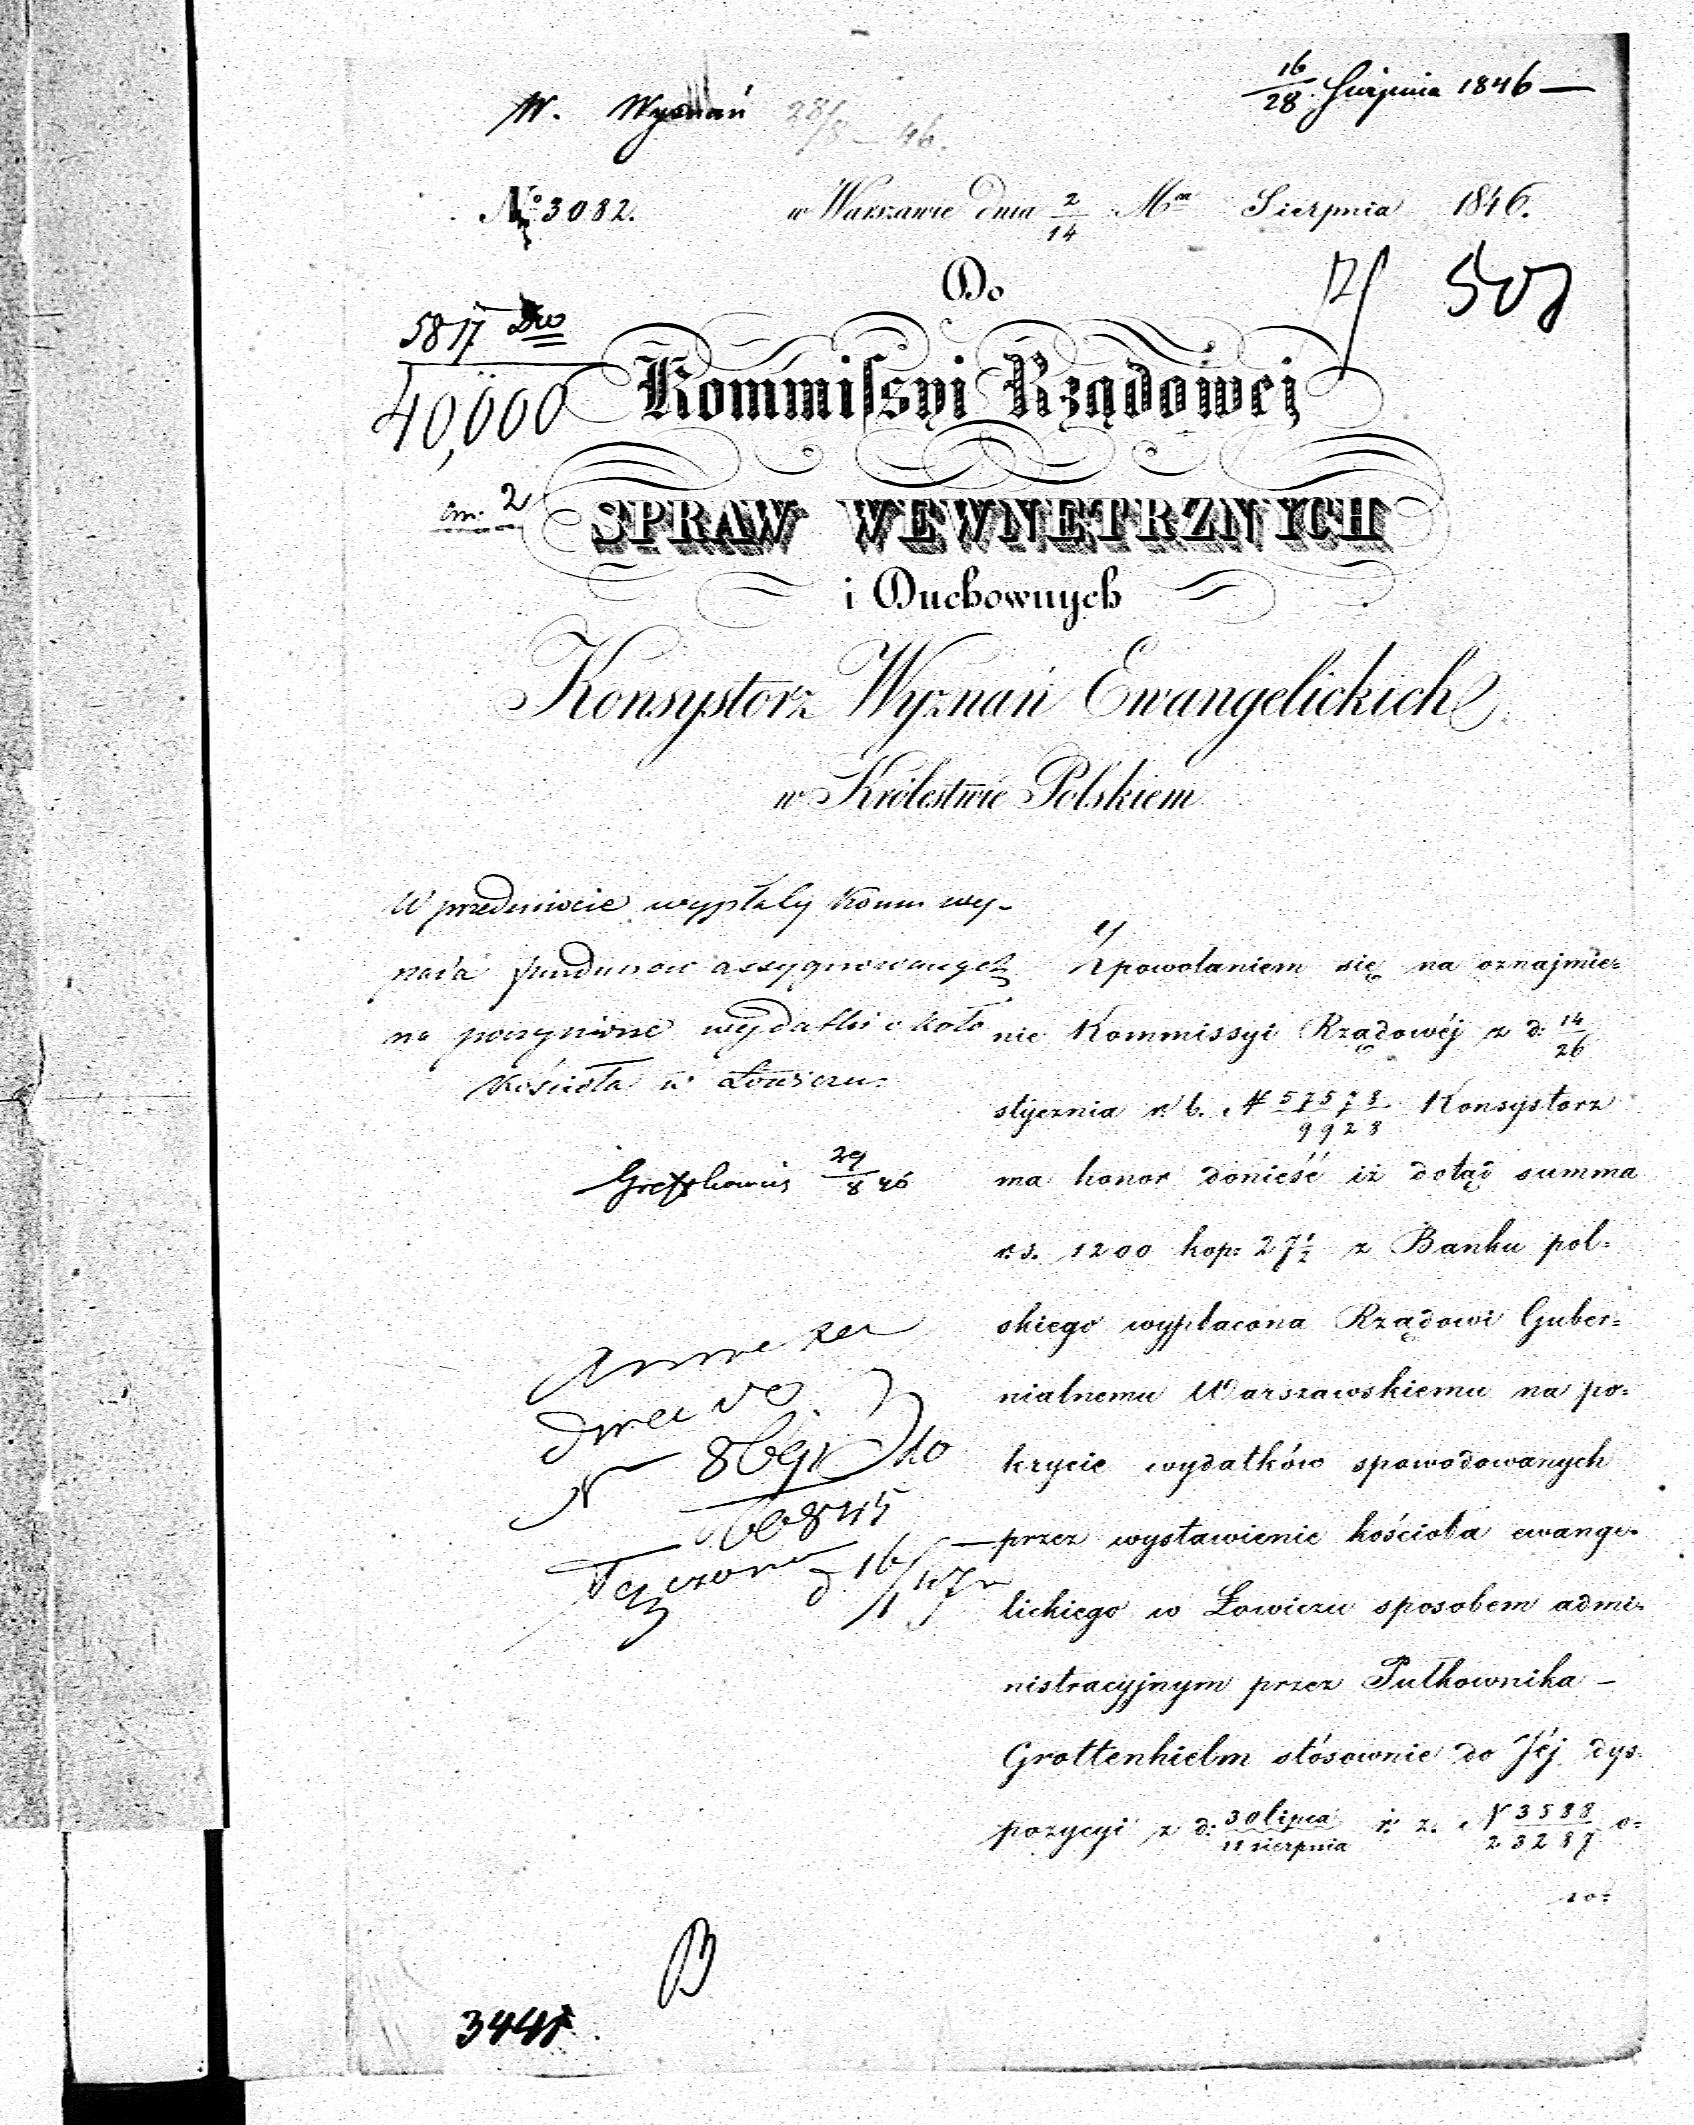 16/28 Sierpnia 1846
W. Wyznań 28/8 – 46.
№ 3082. w Warszawie dnia 2/14 Mca Sierpnia 1846.
Do
507
5817
40,000
Kommiſsyi Rządowej
2
SPRAW WEWNETRZNYCH
i Duchownych
Konsystorz Wyznań Ewangelickich
w Królestwie Polskiem
W przedmiocie wypłaty Komu wy-
pada funduszów assygnowanych
na poczynione wydatki około
Kościoła w Łowiczu.
29/8 46
Z powołaniem się na oznajmie=
nie Kommissyi Rządowéj z d: 14/26
stycznia r. b. N 57578/9928 Konsystorz
ma honor donieść iż dotąd summa
r. s. 1200 kop: 27½ z Banku pol=
skiego wypłacona Rządowi Guber=
nialnemu Warszawskiemu na po=
krycie wydatków spowodowanych
przez wystawienie kościoła ewange=
lickiego w Łowiczu sposobem admi=
nistracyjnym przez Pułkownika –
Grottenhielm stósownie do Jéj dys=
pozycyi z d: 30 lipca/11 sierpnia r. z. N 3588/23287 o=
B